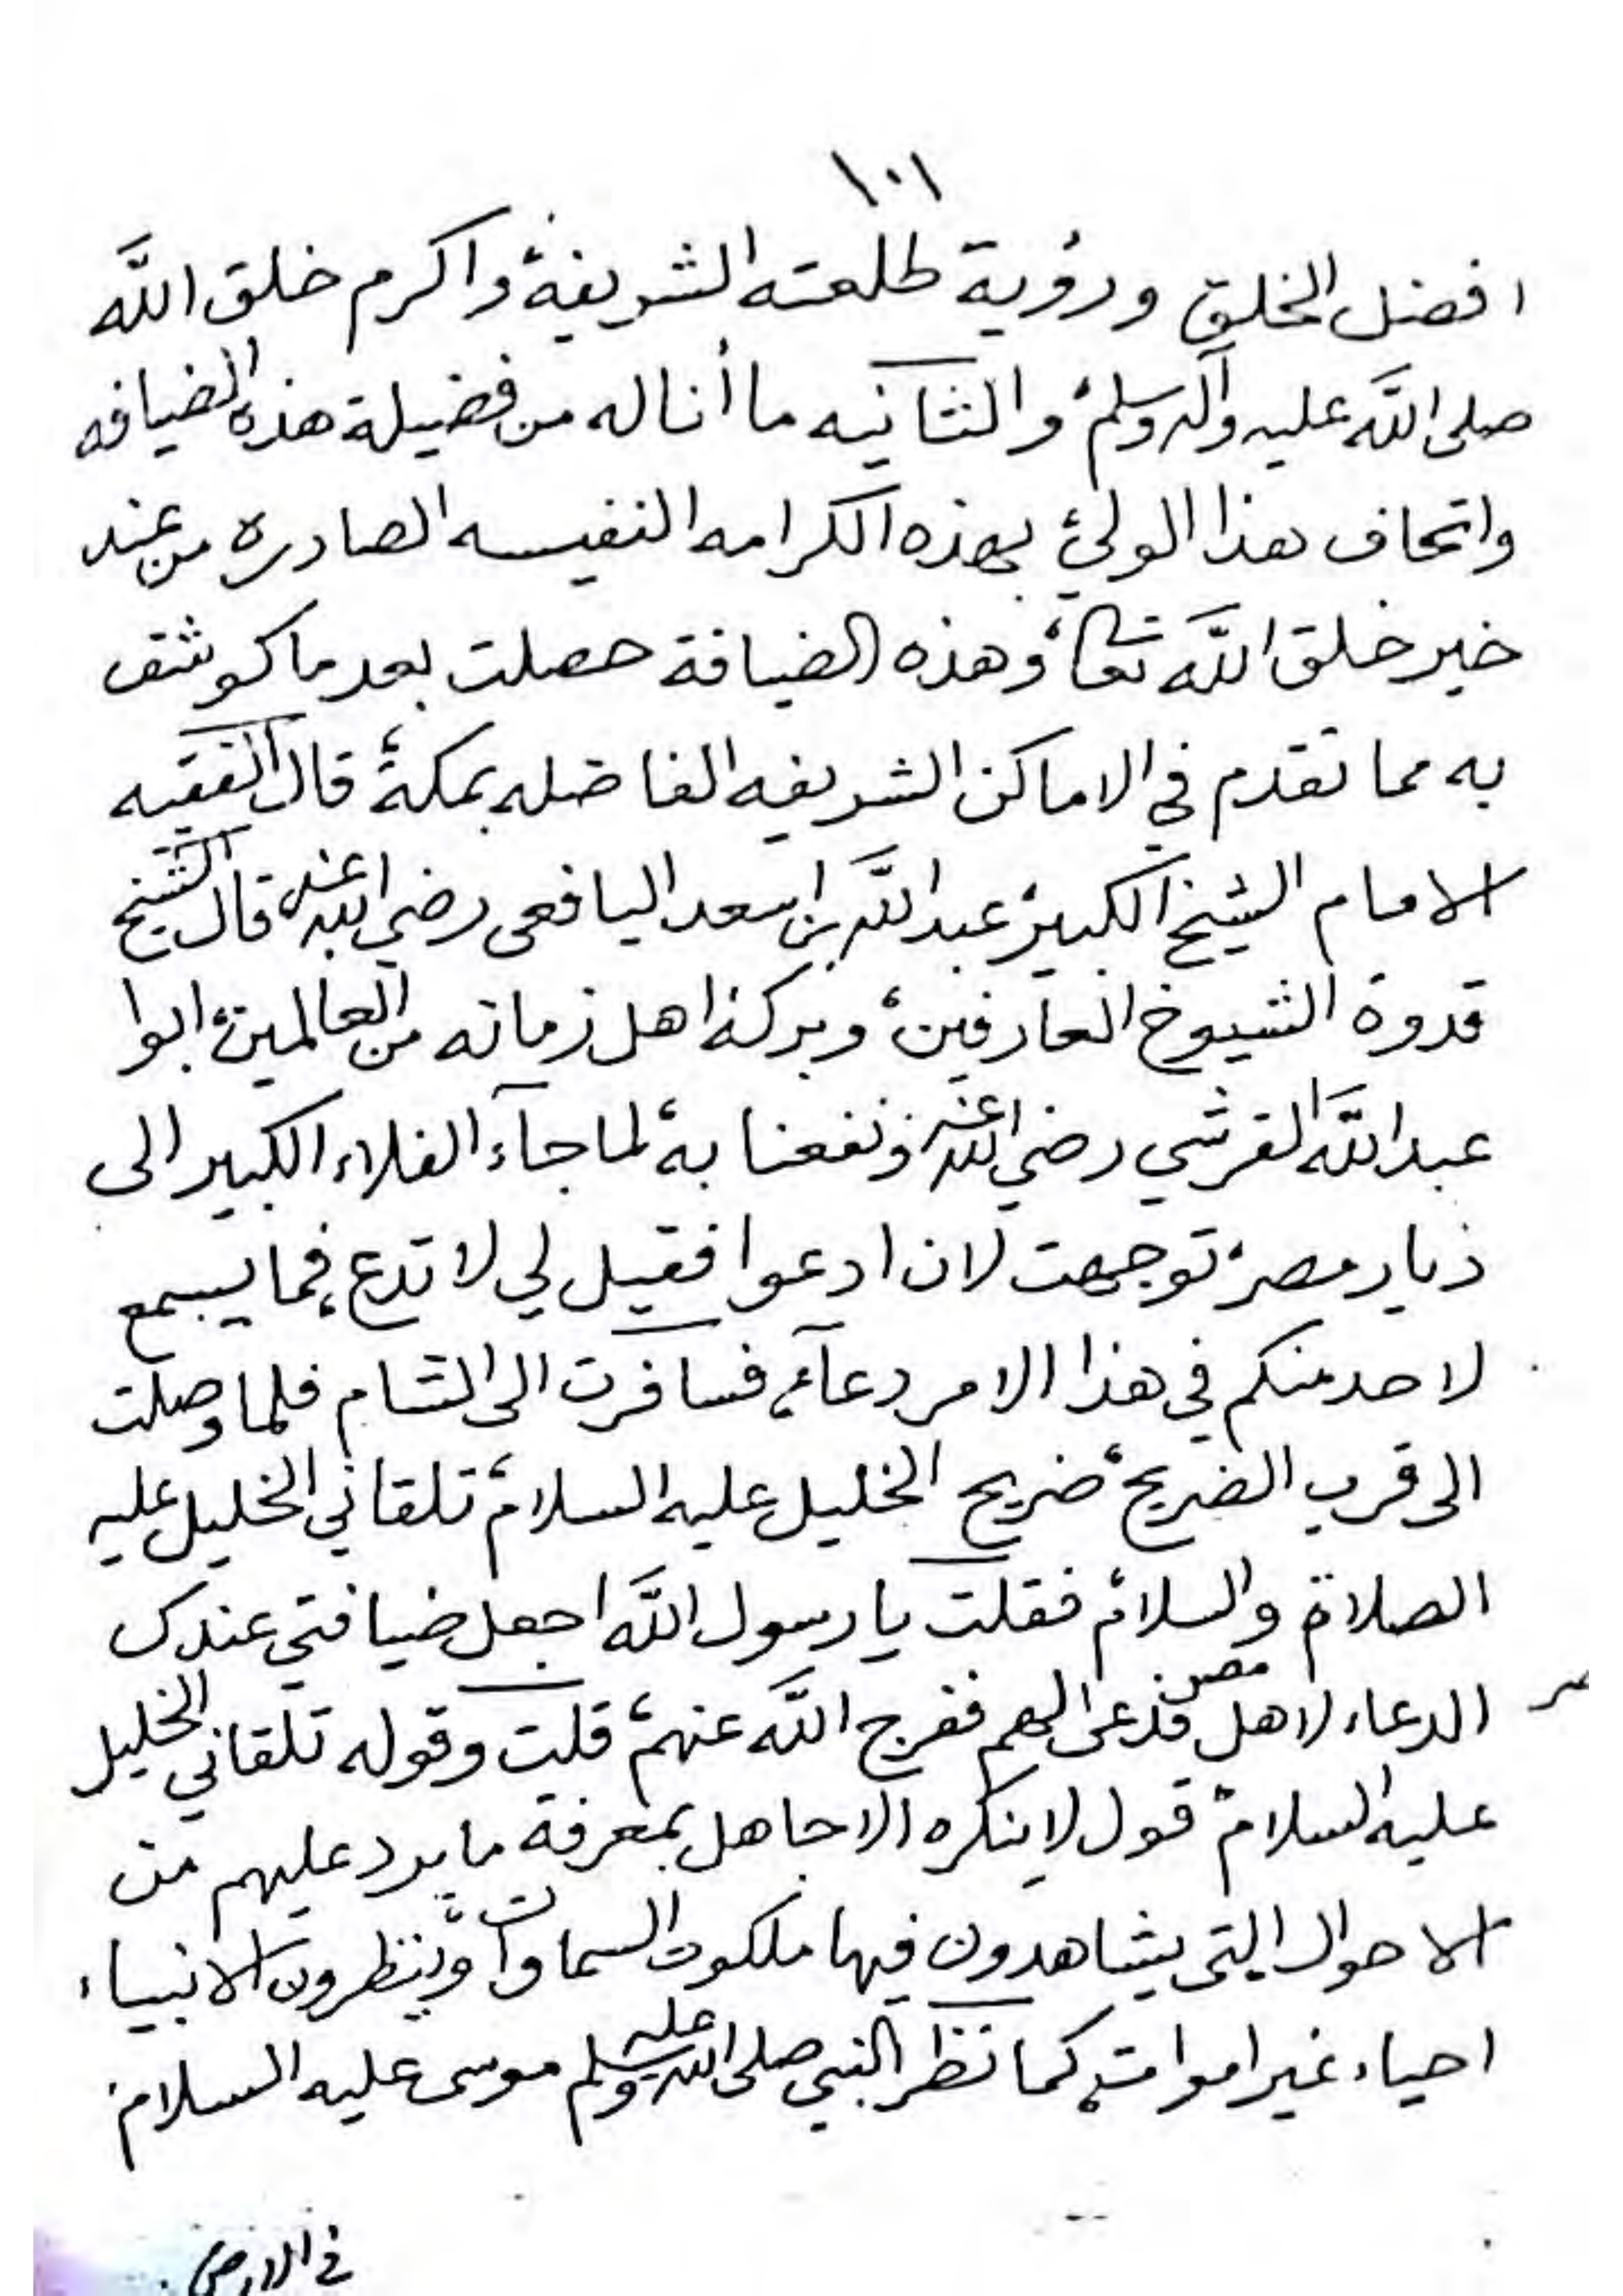 ١٠١
افضل الخلق ورؤية طلعته الشريفة واكرم خلق الله
صلى الله عليه وآله وسلم والثانيه ما أناله من فضيلة هذه الضيافه
واتحاف هذا الولي بهذه الكرامه النفيسه الصادره من عند
خير خلق الله تعالى وهذه الضيافة حصلت بعد ما كوشف
به مما تقدم في الاماكن الشريفه الفاضله بمكة قال الفقيه
الامام الشيخ الكبير عبد الله بن اسعد اليافعى رضي الله عنه قال الشيخ
قدوة الشيوخ العارفين وبركة اهل زمانه من العالمين ابوا
عبد الله القرشي رضي الله عنه ونفعنا به لما جآء الغلاء الكبير الى
ديار مصر توجهت لان ادعوا فقيل لي لا تدع فما يسمع
لاحد منكم في هذا الامر دعآء فسافرت الى الشام فلما وصلت
الى قرب الضريح ضريح الخليل عليه السلام تلقاني الخليل عليه
الصلاة والسلام فقلت يا رسول الله اجعل ضيافتي عندك
الدعاء لاهل مصر فدعى لهم ففرج الله عنهم قلت وقوله تلقاني الخليل
عليه السلام قول لا ينكره الا جاهل بمعرفة ما يرد عليهم من
الاحوال التى يشاهدون فيها ملكوت السماوات وينظرون الانبياء
احياء غير اموات كما نظر النبي صلى الله عليه وسلم موسى عليه السلام
في الارض